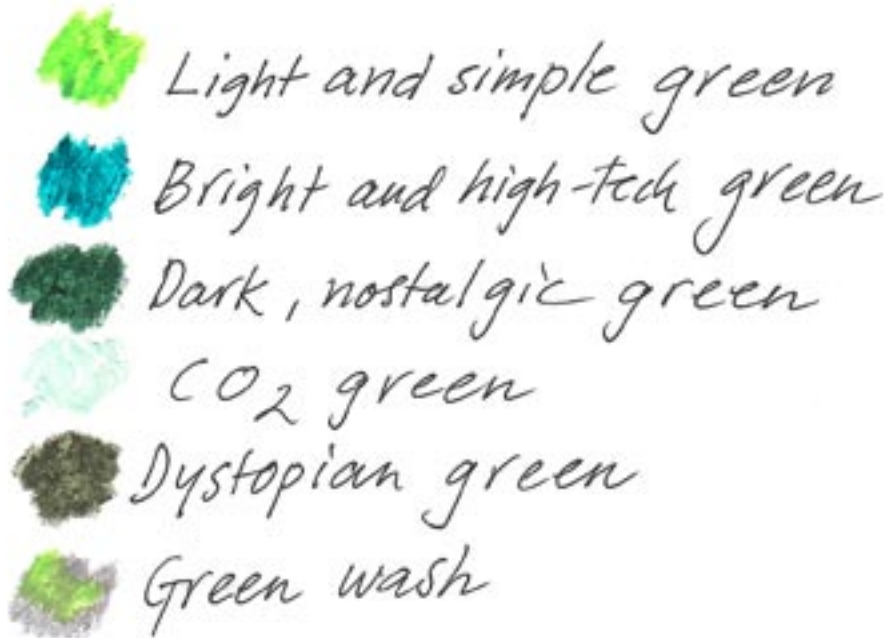 Light and simple green
Bright and high-tech green
Dark, nostalgic green
CO₂ green
Dystopian green
Green wash